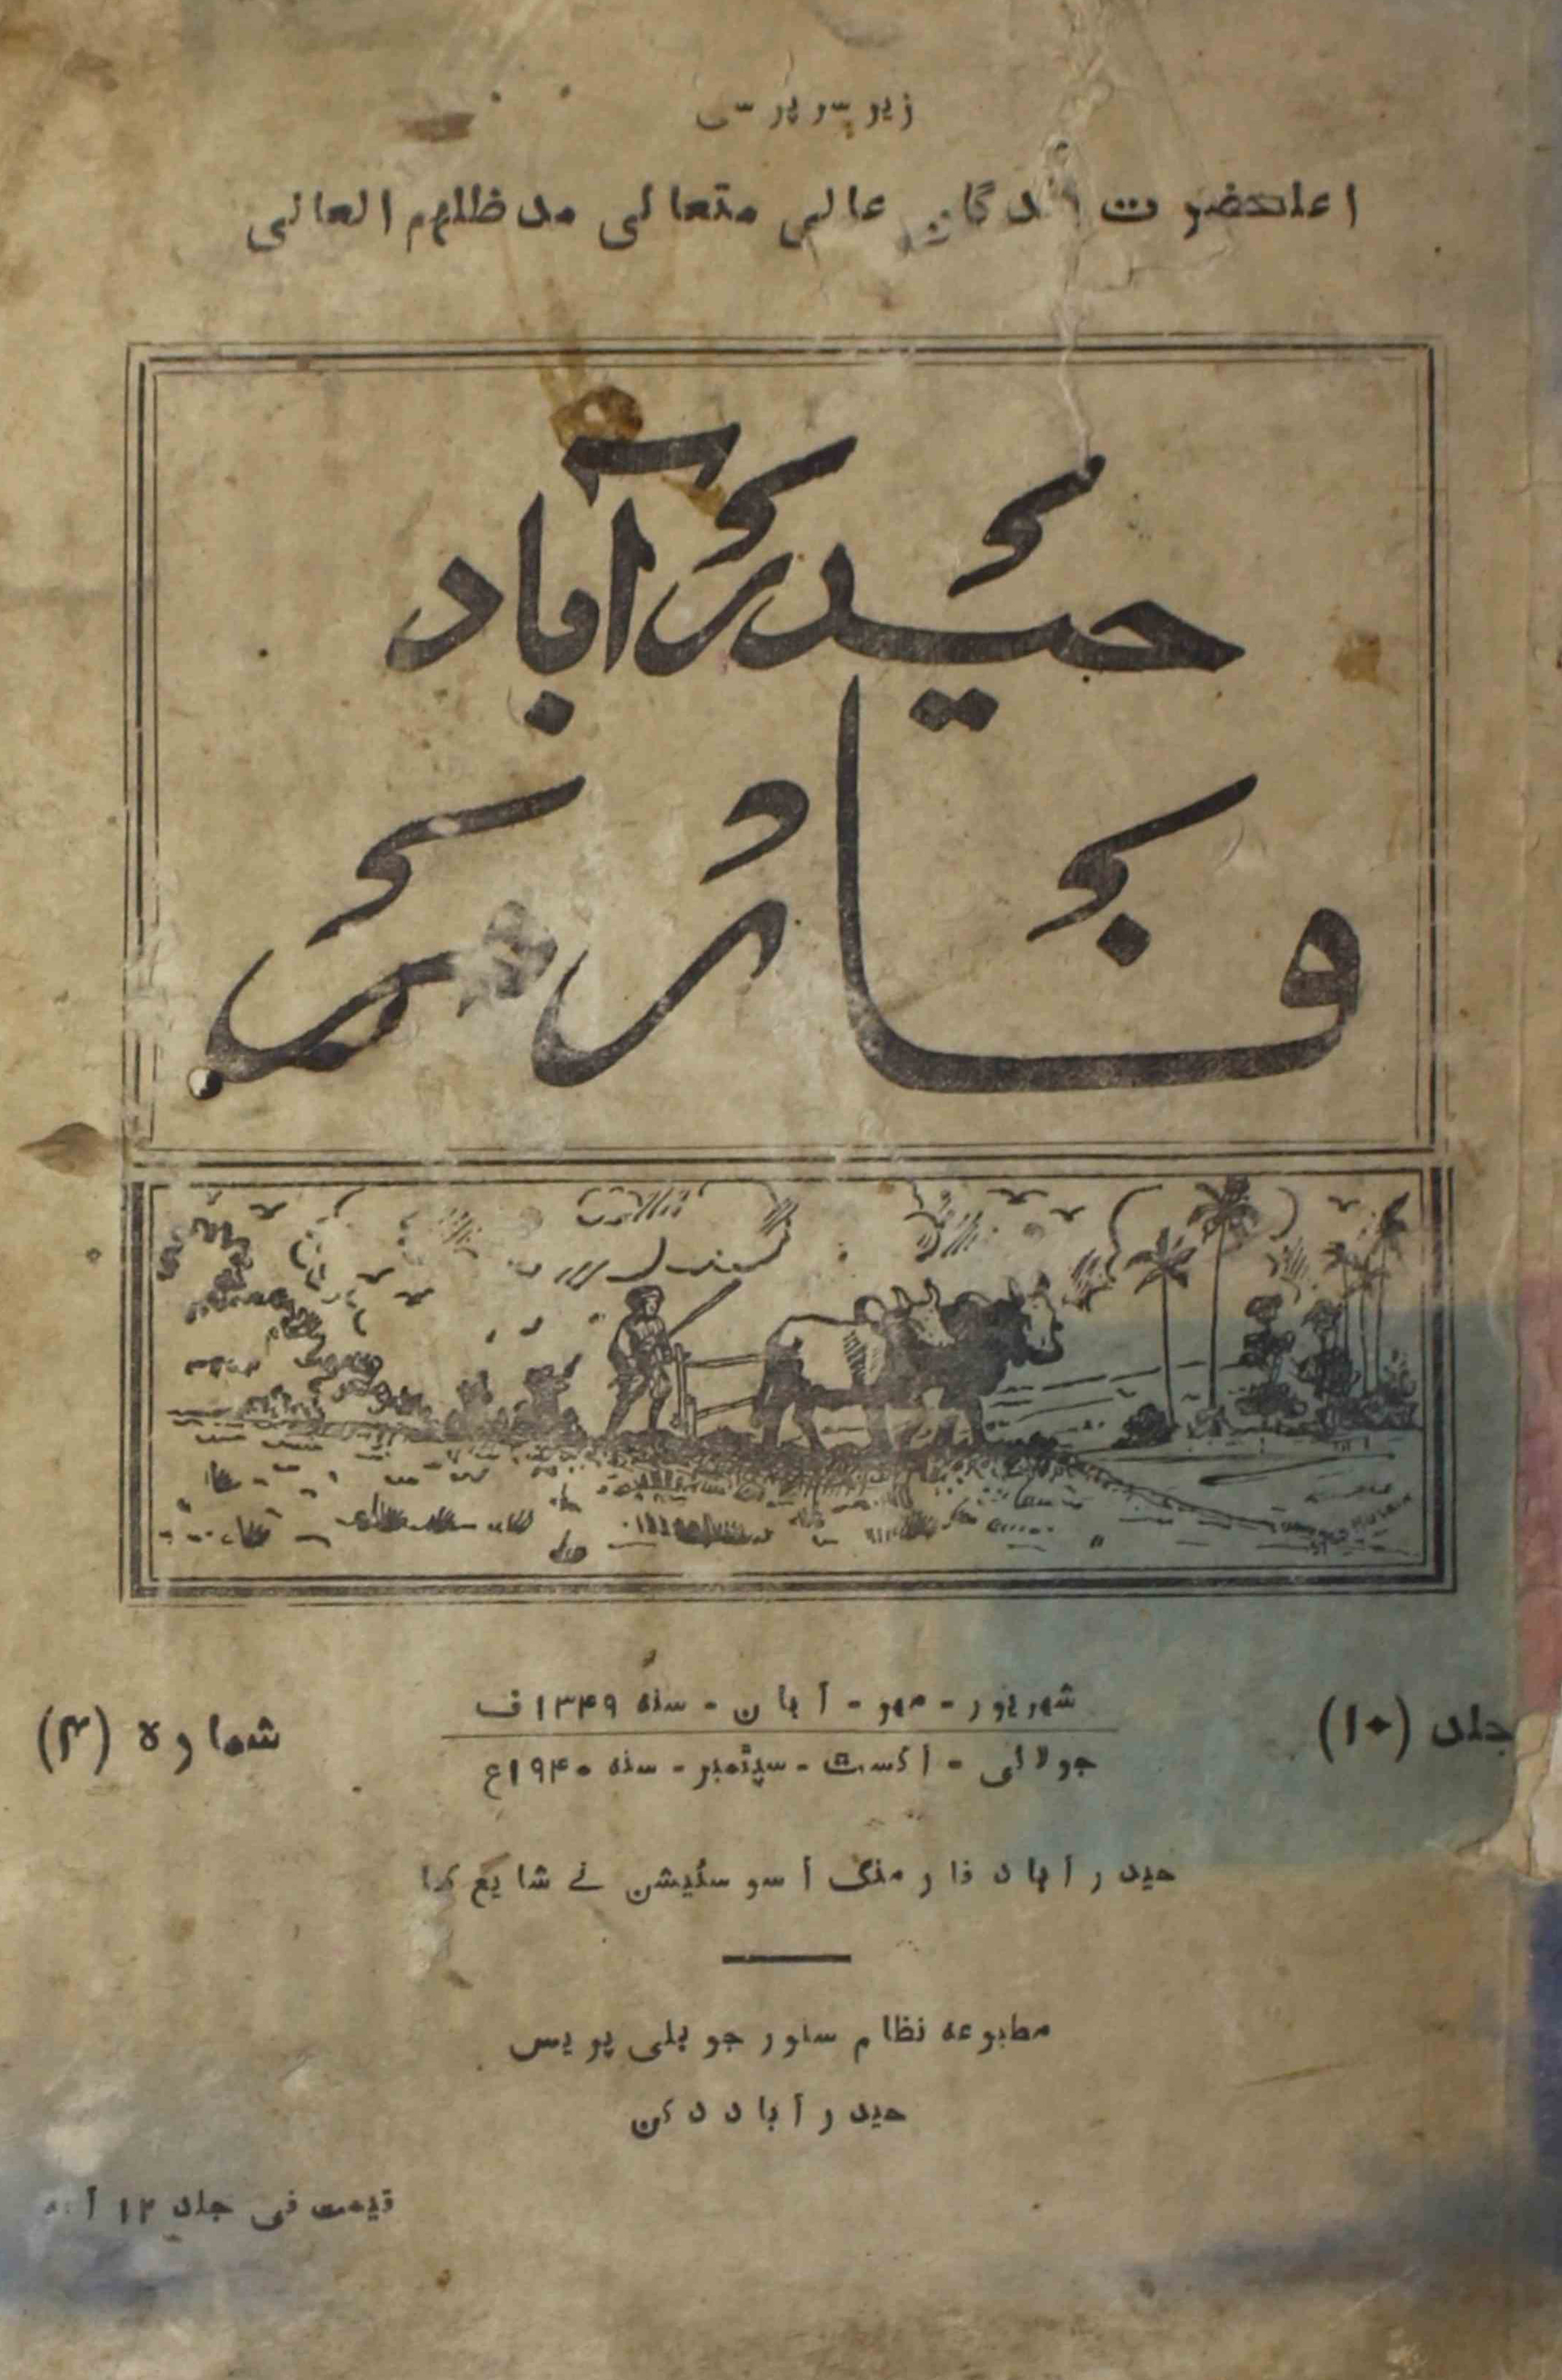 زیر سر پرستی
اعلحضرت بندگان عالی متعالی مدظللہم العالی
حیدرآباد
فارمر
جلد (۱۰)
شہریور - مہر - آبان - سنہ ۱۳۴۹ف
جولائی - اگسٹ - سپتمبر - سنہ ۱۹۴۰ع
شمارہ (۴)
حیدرآباد فارمنگ اسوسئیشن نے شایع کیا
مطبوعہ نظام سلور جوبلی پریس
حیدرآباد دکن
قیمت فی جلد ۱۲ آنہ